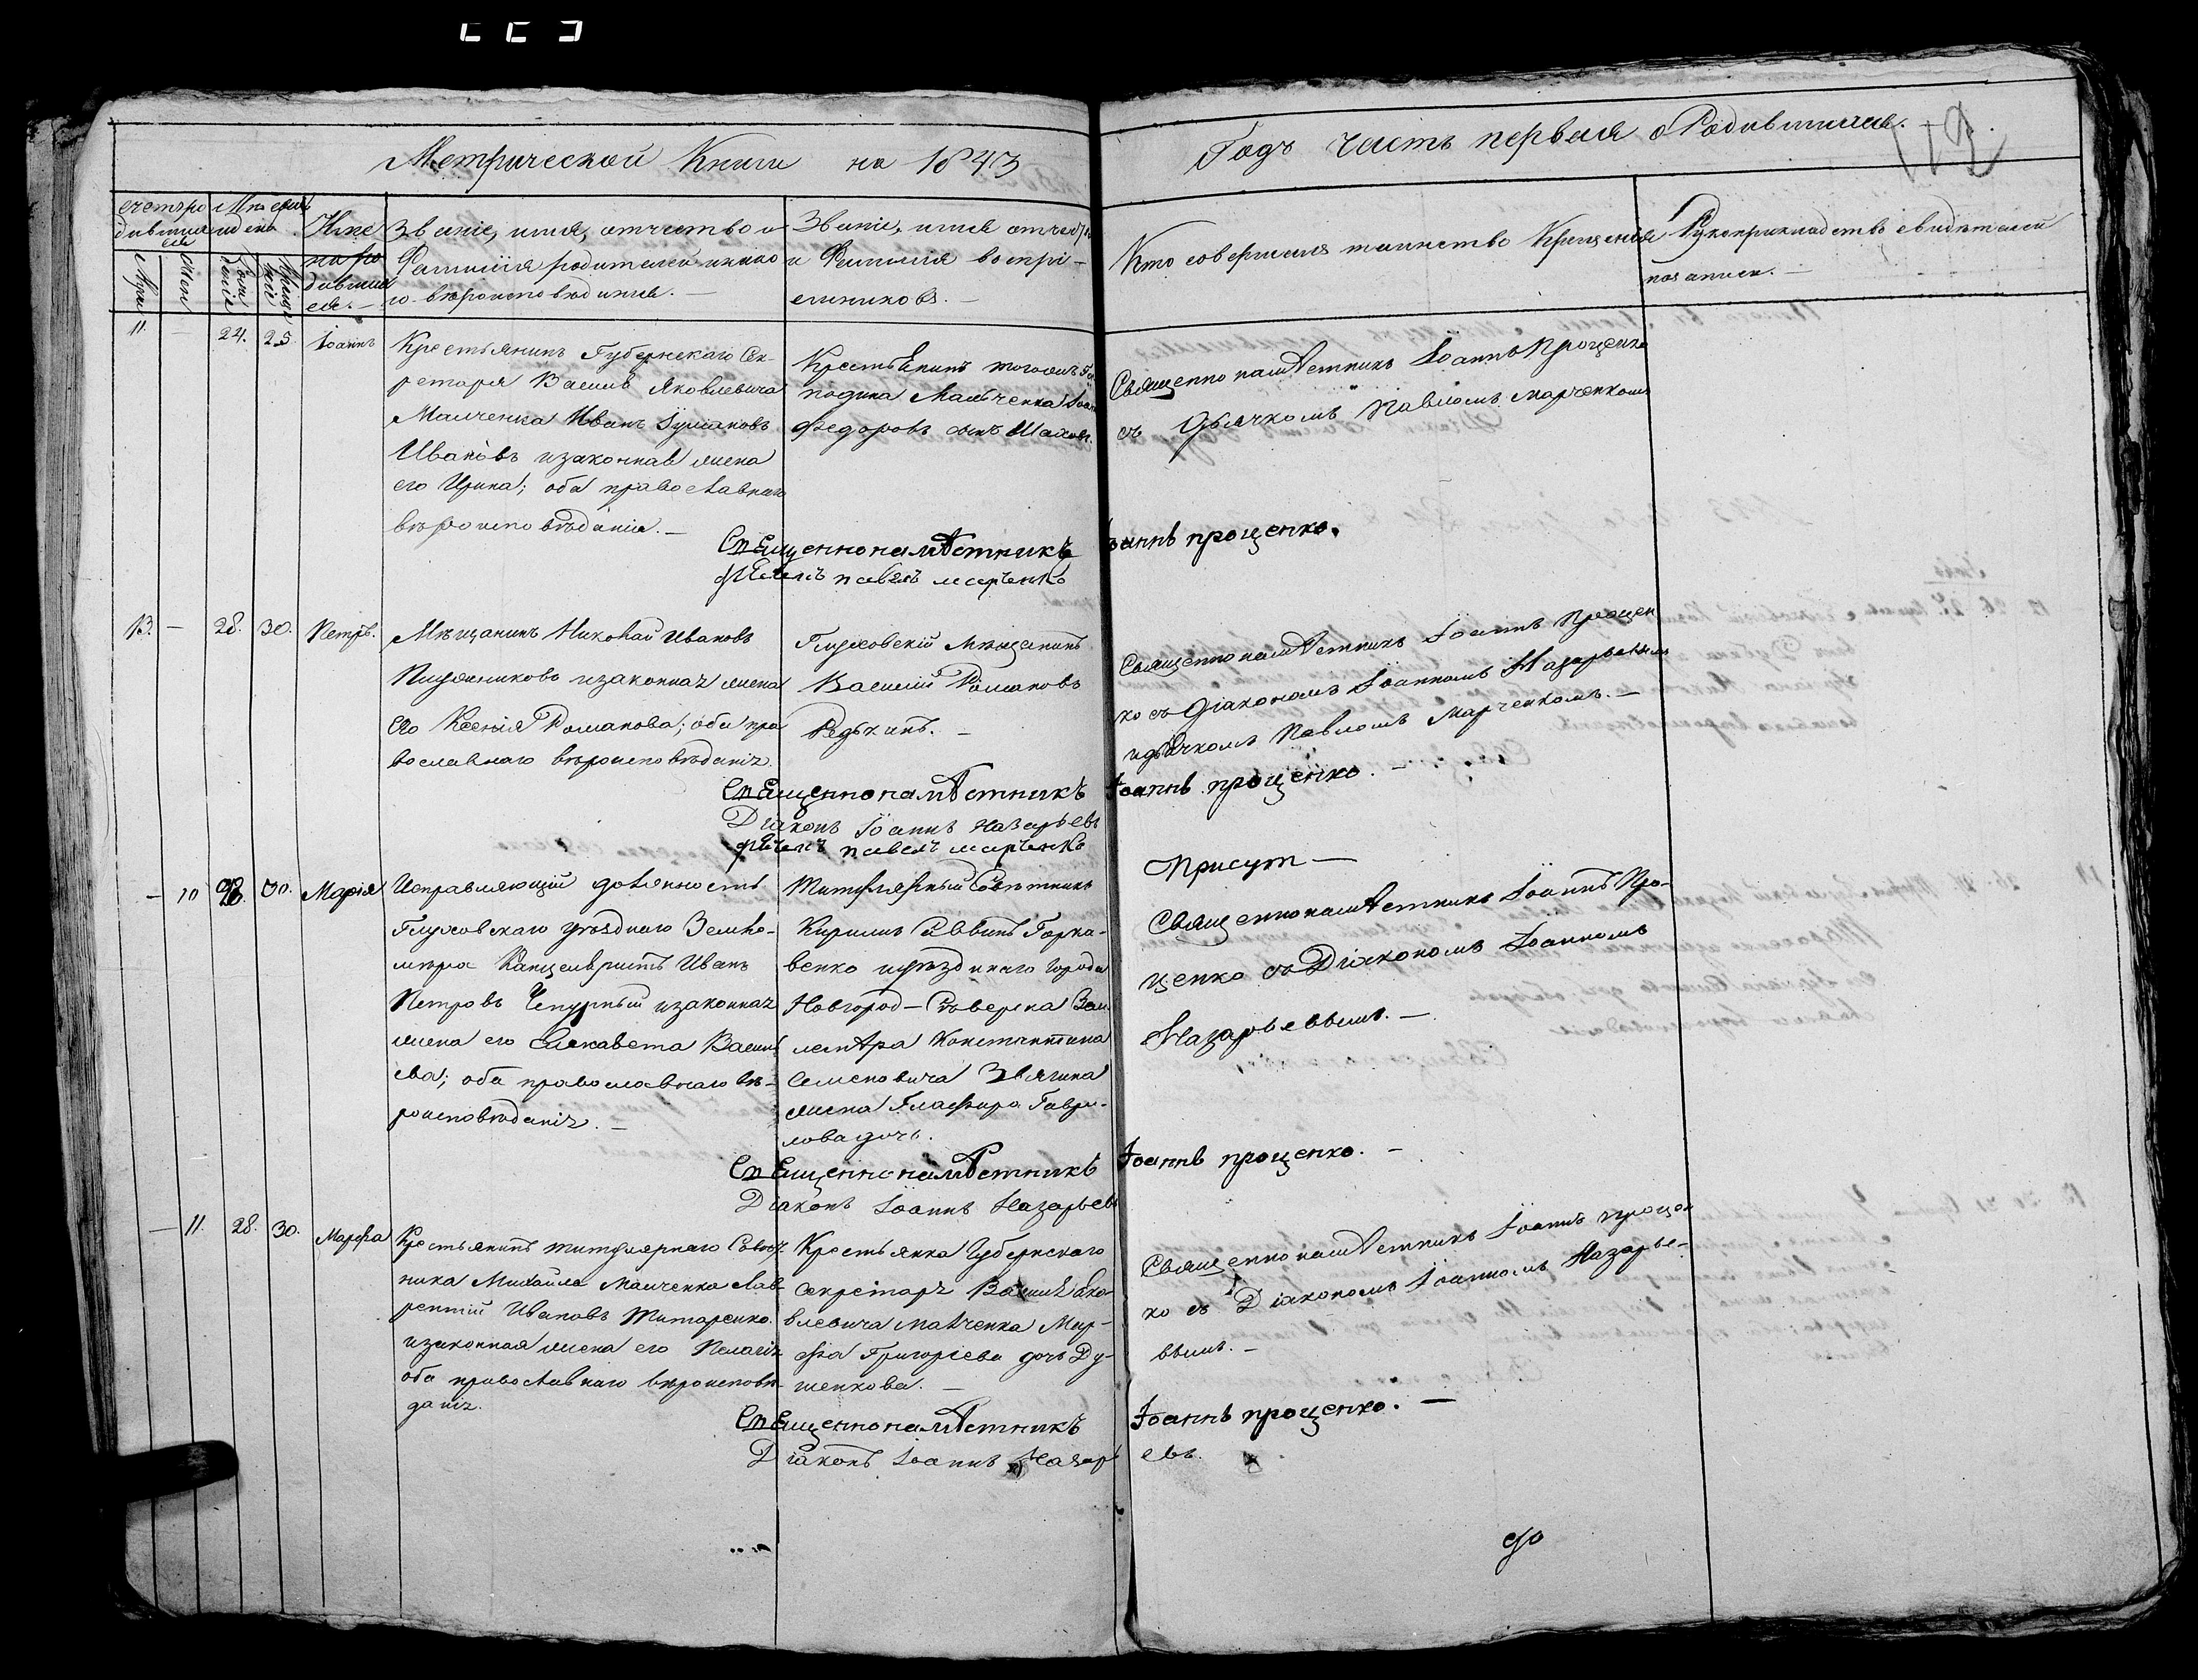 Метрической Книги на 1843
Годъ часть первая о Родившихся.
Счетъ родившихся
Мѣсяцъ и день
Имена родившихся.
Званіе, имя, отчество и
Фамилія родителей и какого
вѣроисповѣданія.
Званіе, имя отчество
и Фамилія воспріемниковъ.
Кто совершалъ таинство Крещенія
Рукоприкладство свидѣтелей
по записи.
11. — 24. 25. Іоаннъ
Крестьянинъ Губернскаго Сек-
ретаря Василія Яковлевича
Малченка Иванъ
Ивановъ и законная жена
его Ирина; оба православнаго
вѣроисповѣданія. —
Крестьянинъ того же Го-
сподина Малченка
Федоровъ сынъ
Священнонамѣстникъ Іоаннъ Проценко
съ Дьячкомъ Павломъ Марченкомъ
Священнонамѣстникъ Іоаннъ Проценко.
Павелъ Марченко
13. — 28. 30. Петръ.
Мѣщанинъ Николай Ивановъ
и законная жена
его Ксенія Романова; оба пра
вославнаго вѣроисповѣданія.
Глуховскій мѣщанинъ
Василій Романовъ
Редькинъ. —
Священнонамѣстникъ Іоаннъ Процен
ко съ Діакономъ Іоанномъ Назарьевымъ
и дьячкомъ Павломъ Марченкомъ. —
Священнонамѣстникъ Іоаннъ Проценко. —
Діаконъ Іоаннъ Назарьевъ
Павелъ Марченко
— 10 28. 30. Марія
Исправляющій должность
Глуховскаго уѣзднаго Землѣ-
мѣра Канцеляристъ Иванъ
Петровъ Чепурный и законная
жена его Елисавета Василь
ева; оба православнаго вѣ-
роисповѣданія. —
Титулярный Совѣтникъ
Кирилъ Горка-
венко и уѣзднаго города
Новгород-Сѣверска Зем
лемѣра Константина
Семеновича Звягина
жена Глафира Гаври-
лова дочь.
Присут —
Священнонамѣстникъ Іоаннъ Про-
ценко съ Діакономъ Іоанномъ
Назарьевымъ. —
Священнонамѣстникъ Іоаннъ Проценко. —
Діаконъ Іоаннъ Назарьевъ
— 11. 28. 30. Марфа
Крестьянинъ титулярнаго Совѣт
ника Михайла Малченка Лав-
рентій Ивановъ Титаренко
и законная жена его Пелагія
оба православнаго вѣроисповѣ-
данія.
Крестьянка Губернскаго
Секретаря Василія Яко-
влевича Малченка Мар-
фа Григоріева дочь Ду-
шенкова. —
Священнонамѣстникъ Іоаннъ Процен
ко съ Діакономъ Іоанномъ Назарье-
вымъ. —
Священнонамѣстникъ Іоаннъ Проценко. —
Діаконъ Іоаннъ Назарьевъ.